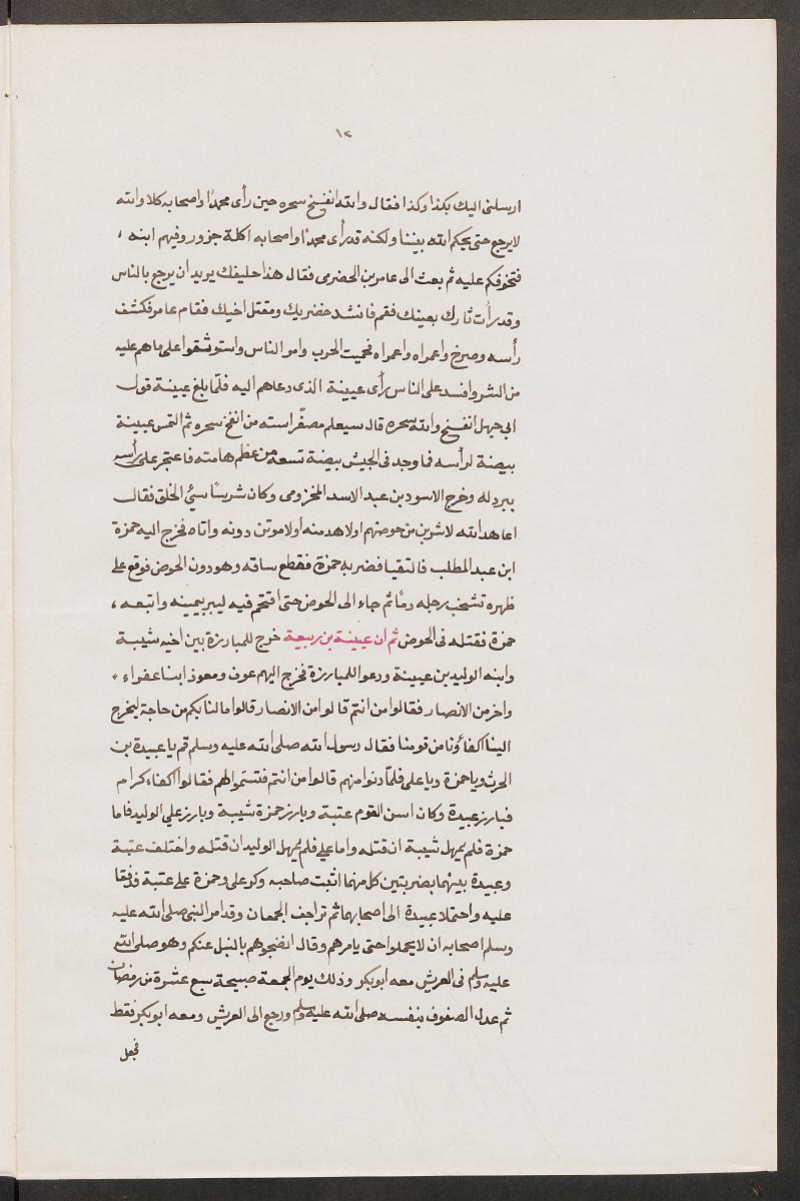 ١٢
ارسلنى اليك بكذا وكذا فقال والله انفسخ سحره حين رأى محمدًا واصحابه كلا والله
لايرجع حتى يحكم الله بيننا ولكنه قد رأى محمدًا واصحابه اكلة جزور وفيهم ابنه ،
فتخوفكم عليه ثم بعث الى عامر بن الحضرمى فقال هذا حليفك يريد ان يرجع بالناس
وقد رأت ثارك بعينك فقم فانشد حضربك ومقتل اخيك فقام عامر فكشف
رأسه وصرخ واعمراه واعمراه فحميت الحرب وامر الناس واستوثقوا على ما هم عليه
من الشر وافسد على الناس رأى عيينة الذى دعاهم اليه فلما بلغ عيينة قول
ابى جهل انفسخ والله سحره قال سيعلم مصفّر استه من انفخ سحره ثم التمس عيينة
بيضة لرأسه فما وجد فى الجيش بيضة تسعه من عظم هامته فاعتجر على رأسه
ببردله وخرج الاسود بن عبد الاسد المخزومى وكان شرسًا سيئ الخلق فقال
اعاهد الله لاشربن من حوضهم اولاهدمنه اولاموتن دونه واتاه فخرج اليه حمزة
ابن عبد المطلب فالتقيا فضربه حمزة فقطع ساقه وهو دون الحوض فوقع على
ظهره تشخب رجله دمًا ثم جاء الى الحوض حتى اقتحم فيه ليبر يمينه واتبعه ،
حمزة فقتله فى الحوض ثم ان عيينة بن ربيعة خرج للمبارزة بين اخيه شيبة
وابنه الوليد بن عيينة ودعوا للمبارزة فخرج اليهم عوف ومعوذ ابنا عفراء .
واخر من الانصار فقالوا من انتم قالوا من الانصار قالوا ما لنا بكم من حاجة ليخرج
الينا اكفاؤنا من قومنا فقال رسول الله صلى الله عليه وسلم قم يا عبيدة بن
الحرث ويا حمزة ويا على فلما دنوا منهم قالوا من انتم فتسموا لهم فقالوا اكفاء كرام
فبارز عبيدة وكان اسن القوم عتبة وبارز حمزة شيبة وبارز علي الوليد فاما
حمزة فلم يمهل شيبة ان قتله واما على فلم يمهل الوليد ان قتله واختلف عتبة
وعبيدة بينهما بضربتين كل منهما اثبت صاحبه وكر على وحمزة على عتبة فدففا
عليه واحتملا عبيدة الى اصحابهما ثم تراجف الجمعان وقد امر النبى صلى الله عليه
وسلم اصحابه ان لا يحملوا حتى يامرهم وقال انضحوهم بالنبل عنكم وهو صلى الله
عليه وسلم فى العريش معه ابوبكر وذلك يوم الجمعة صبيحة سبع عشرة من رمضان
ثم عدل الصفوف بنفسه صلى الله عليه وسلم ورجع الى العريش ومعه ابوبكر فقط
فجعل